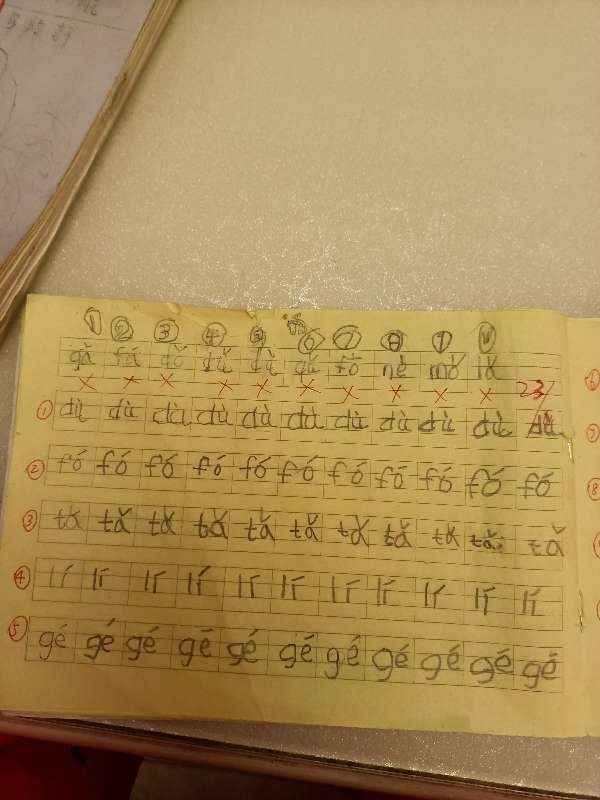 ① ② ③ ④ ⑤ ⑥ ⑦ ⑧ ⑨ ⑩
gǎ fó dǔ dù fó nè mǒ
× × × × × × × × × × 23/
① dù dù dù dù dù dù dù dù dù dù dù
② fó fó fó fó fó fó fó fó fó fó fó
③ tǎ tǎ tǎ tǎ tǎ tǎ tǎ tǎ tǎ tǎ tǎ
④ lí lí lí lí lí lí lí lí lí lí lí
⑤ gé gé gé gé gé gé gé gé gé gé gé